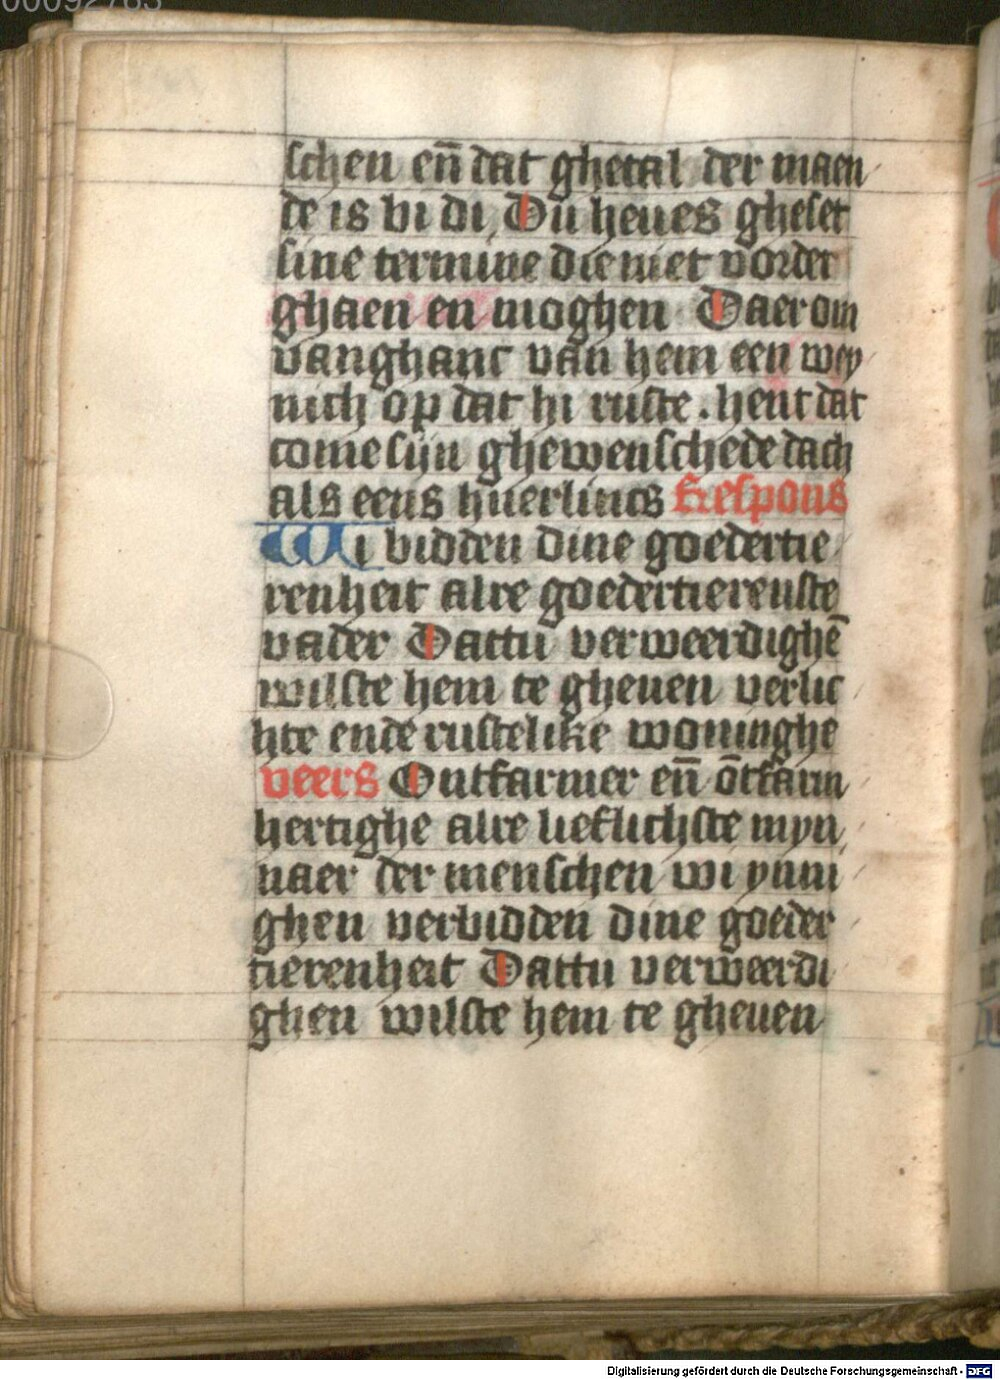 00092763
schen en̄ dat ghetal der maen
de is bi di, Du heues gheset
sine termine die niet vorder
ghaen en moghen Daer om
vanghanc van hem een wey
nich op dat hi ruste . hent dat
come sijn ghewenschede dach
als eens huerlincs Respons
Wi bidden dine goedertie
renheit alre goedertierenste
vader Dattu verweerdighē
wilste hem te gheuen verlic
hte ende rustelike woninghe
veers Ontfarmer en̄ ōtfarm
hertighe alre lieflichste myn
naer der menschen wi ynni
ghen verbidden dine goeder
tierenheit Dattu verweerdi
ghen wilste hem te gheuen
Digitalisierung gefördert durch die Deutsche Forschungsgemeinschaft - DFG